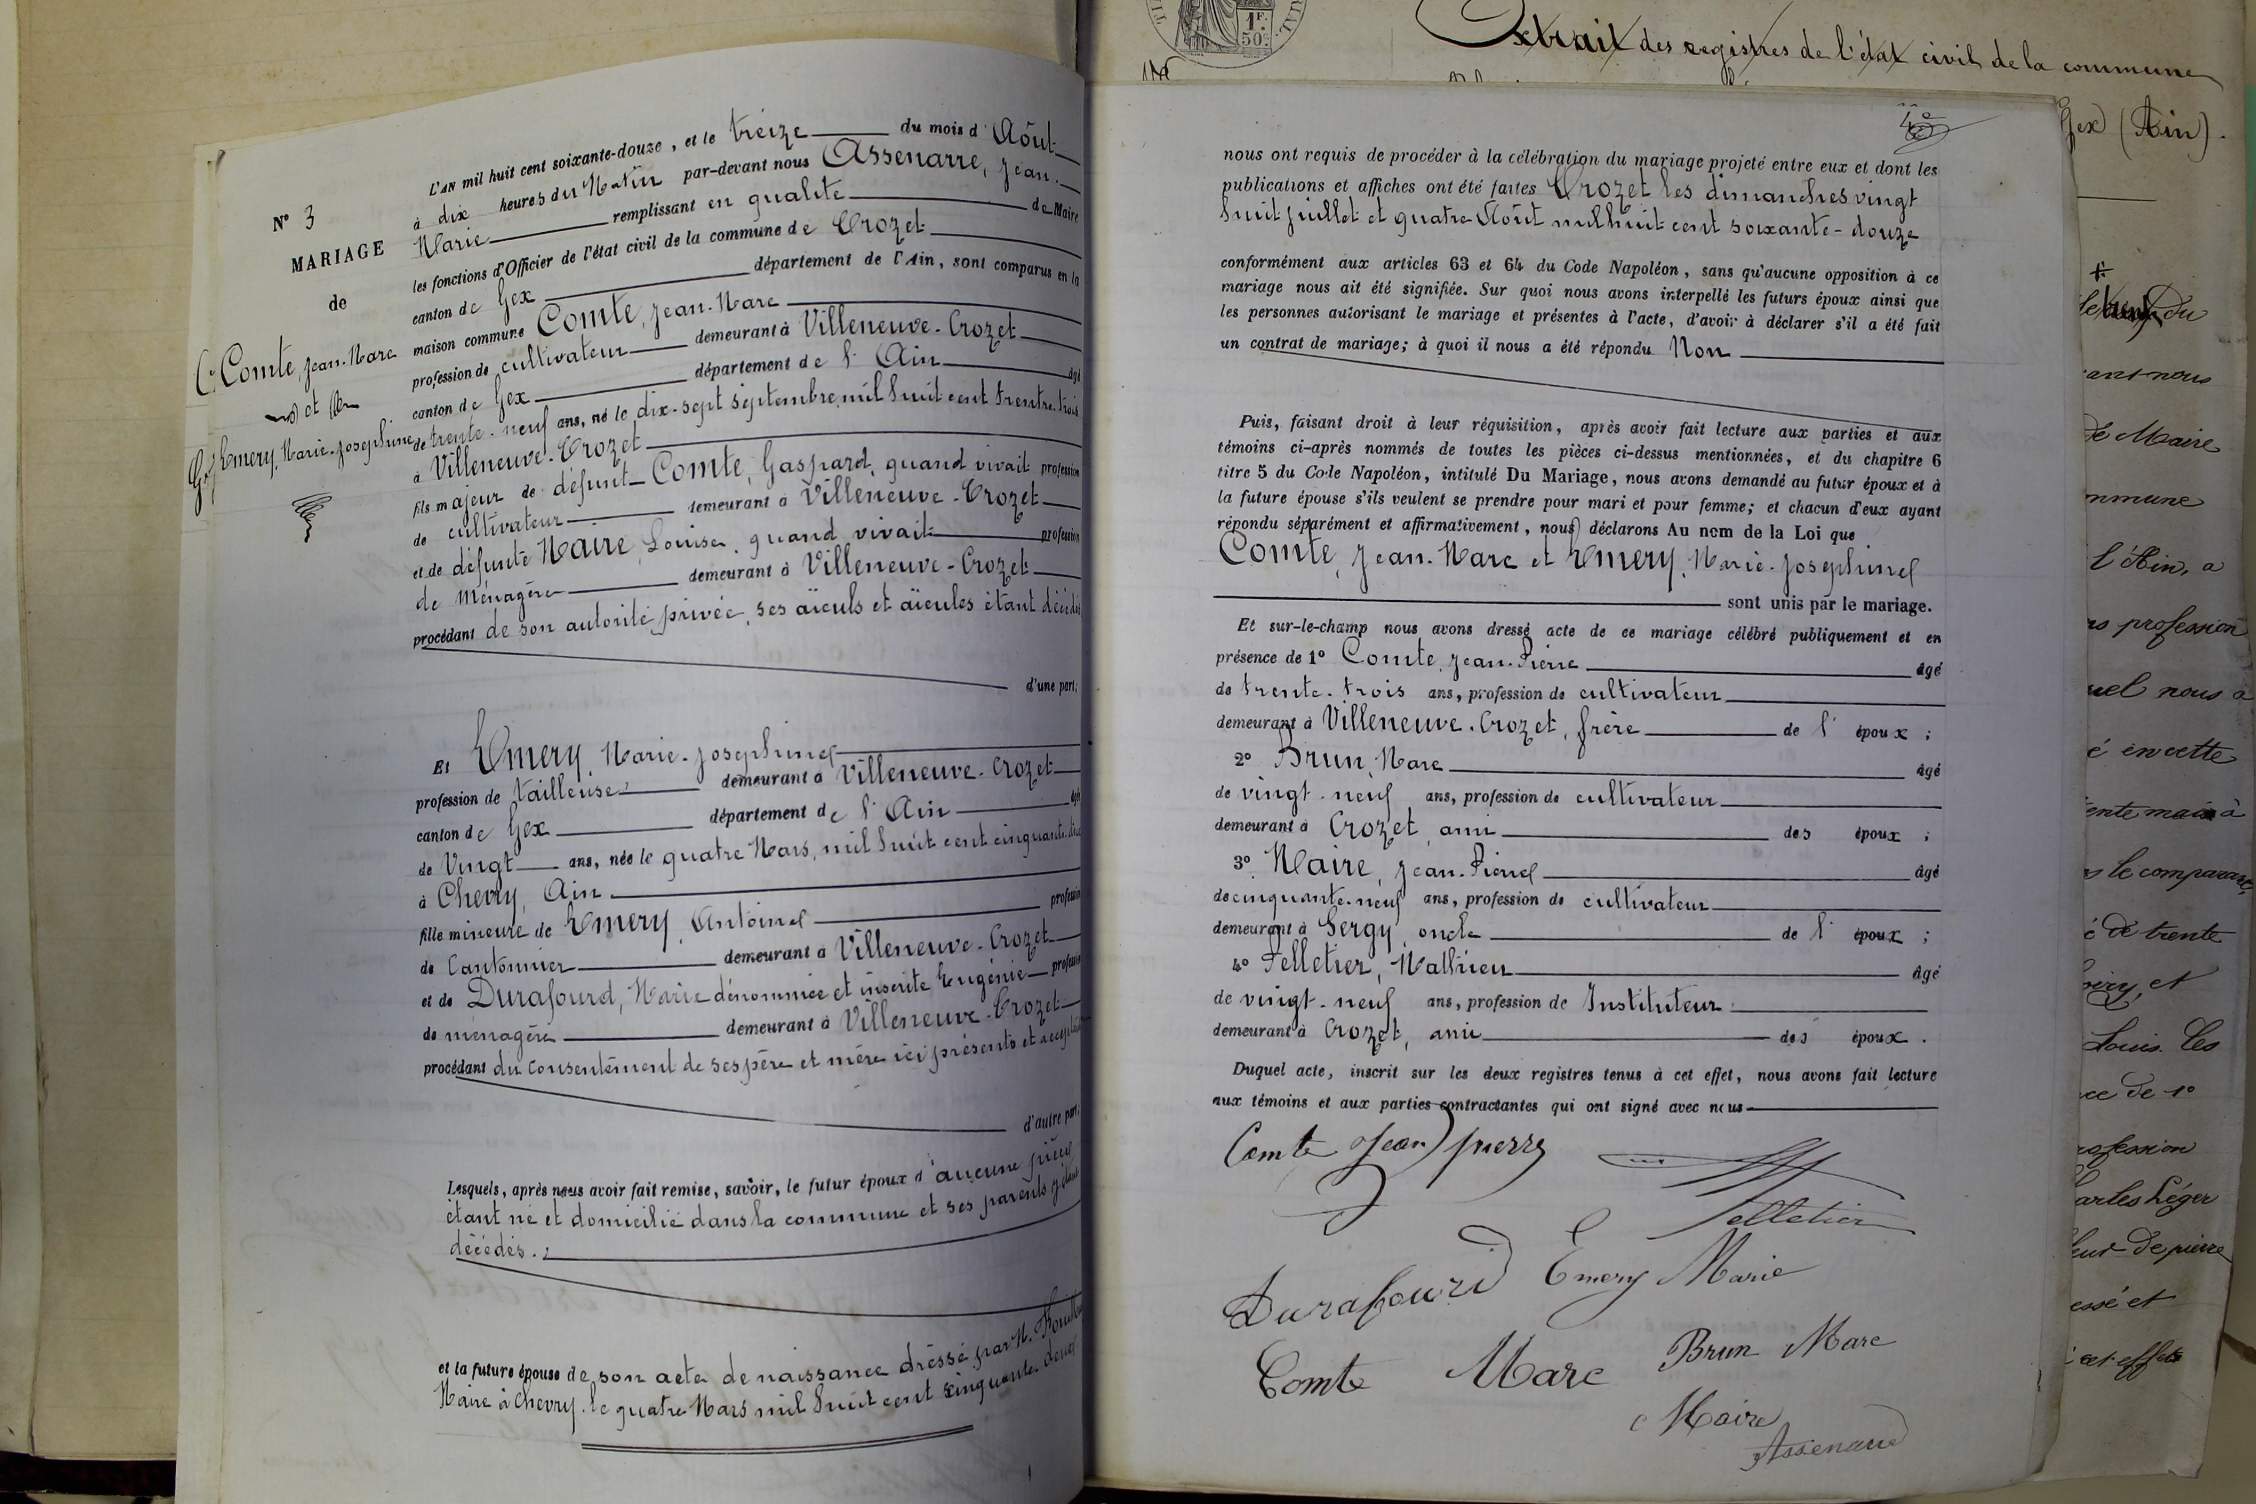 N° 3
MARIAGE
de
Comte, Jean-Marc
et
Emery, Marie-Josephine
L'AN mil huit cent soixante-douze, et le treize du mois d'Août
à dix heures du Matin par-devant nous Assenarre, Jean-
Marie remplissant en qualité de Maire
les fonctions d'Officier de l'état civil de la commune de Crozet
canton de Gex département de l'Ain, sont comparus en la
maison commune Comte, Jean-Marc
profession de cultivateur demeurant à Villeneuve-Crozet
canton de Gex département de l'Ain âgé
de trente-neuf ans, né le dix-sept septembre mil huit cent trente-trois
à Villeneuve-Crozet
fils majeur de défunt Comte, Gaspard, quand vivait profession
de cultivateur demeurant à Villeneuve-Crozet
et de défunte Maire, Louise, quand vivait profession
de ménagère demeurant à Villeneuve-Crozet
procédant de son autorité privée, ses aïeuls et aïeules étant décédés
d'une part;
Et Emery, Marie-Josephine
profession de tailleuse demeurant à Villeneuve-Crozet
canton de Gex département de l'Ain âgée
de Vingt ans, née le quatre Mars, mil huit cent cinquante-deux
à Chevry, Ain
fille mineure de Emery, Antoine profession
de Cantonnier demeurant à Villeneuve-Crozet
et de Durafourd, Marie dénommée et inscrite Eugénie profession
de ménagère demeurant à Villeneuve-Crozet
procédant du consentement de ses père et mère ici présents et acceptant
d'autre part;
Lesquels, après nous avoir fait remise, savoir, le futur époux d'aucune pièce
étant né et domicilié dans la commune et ses parents y étant
décédés.;
et la future épouse de son acte de naissance dressé par M.
Maire à Chevry, le quatre Mars mil huit cent cinquante-deux
nous ont requis de procéder à la célébration du mariage projeté entre eux et dont les
publications et affiches ont été faites Crozet les dimanches vingt
huit juillet et quatre Août mil huit cent soixante-douze
conformément aux articles 63 et 64 du Code Napoléon, sans qu'aucune opposition à ce
mariage nous ait été signifiée. Sur quoi nous avons interpellé les futurs époux ainsi que
les personnes autorisant le mariage et présentes à l'acte, d'avoir à déclarer s'il a été fait
un contrat de mariage; à quoi il nous a été répondu Non
Puis, faisant droit à leur réquisition, après avoir fait lecture aux parties et aux
témoins ci-après nommés de toutes les pièces ci-dessus mentionnées, et du chapitre 6
titre 5 du Code Napoléon, intitulé Du Mariage, nous avons demandé au futur époux et à
la future épouse s'ils veulent se prendre pour mari et pour femme; et chacun d'eux ayant
répondu séparément et affirmativement, nous déclarons Au nom de la Loi que
Comte, Jean-Marc et Emery, Marie-Josephine
sont unis par le mariage.
Et sur-le-champ nous avons dressé acte de ce mariage célébré publiquement et en
présence de 1° Comte, Jean-Pierre âgé
de trente-trois ans, profession de cultivateur
demeurant à Villeneuve-Crozet, frère de l'époux;
2° Brun, Marc âgé
de vingt-neuf ans, profession de cultivateur
demeurant à Crozet, ami des époux;
3° Maire, Jean-Pierre âgé
de cinquante-neuf ans, profession de cultivateur
demeurant à Sergy, oncle de l'époux;
4° Pelletier, Mathieu âgé
de vingt-neuf ans, profession de Instituteur
demeurant à Crozet, ami des époux.
Duquel acte, inscrit sur les deux registres tenus à cet effet, nous avons fait lecture
aux témoins et aux parties contractantes qui ont signé avec nous
Comte Jean pierre
Pelletier
Durafourd Emery Marie
Comte Marc Brun Marc
Maire
Assenarre
1F. 50c.
Extrait des registres de l'état civil de la commune
Gex (Ain).
du
nous
de Maire
l'Ain, a
profession
nous a
é en cette
le comparant
é de trente
et
Louis. Les
ce de 1°
de pierre
essé et
cet effet